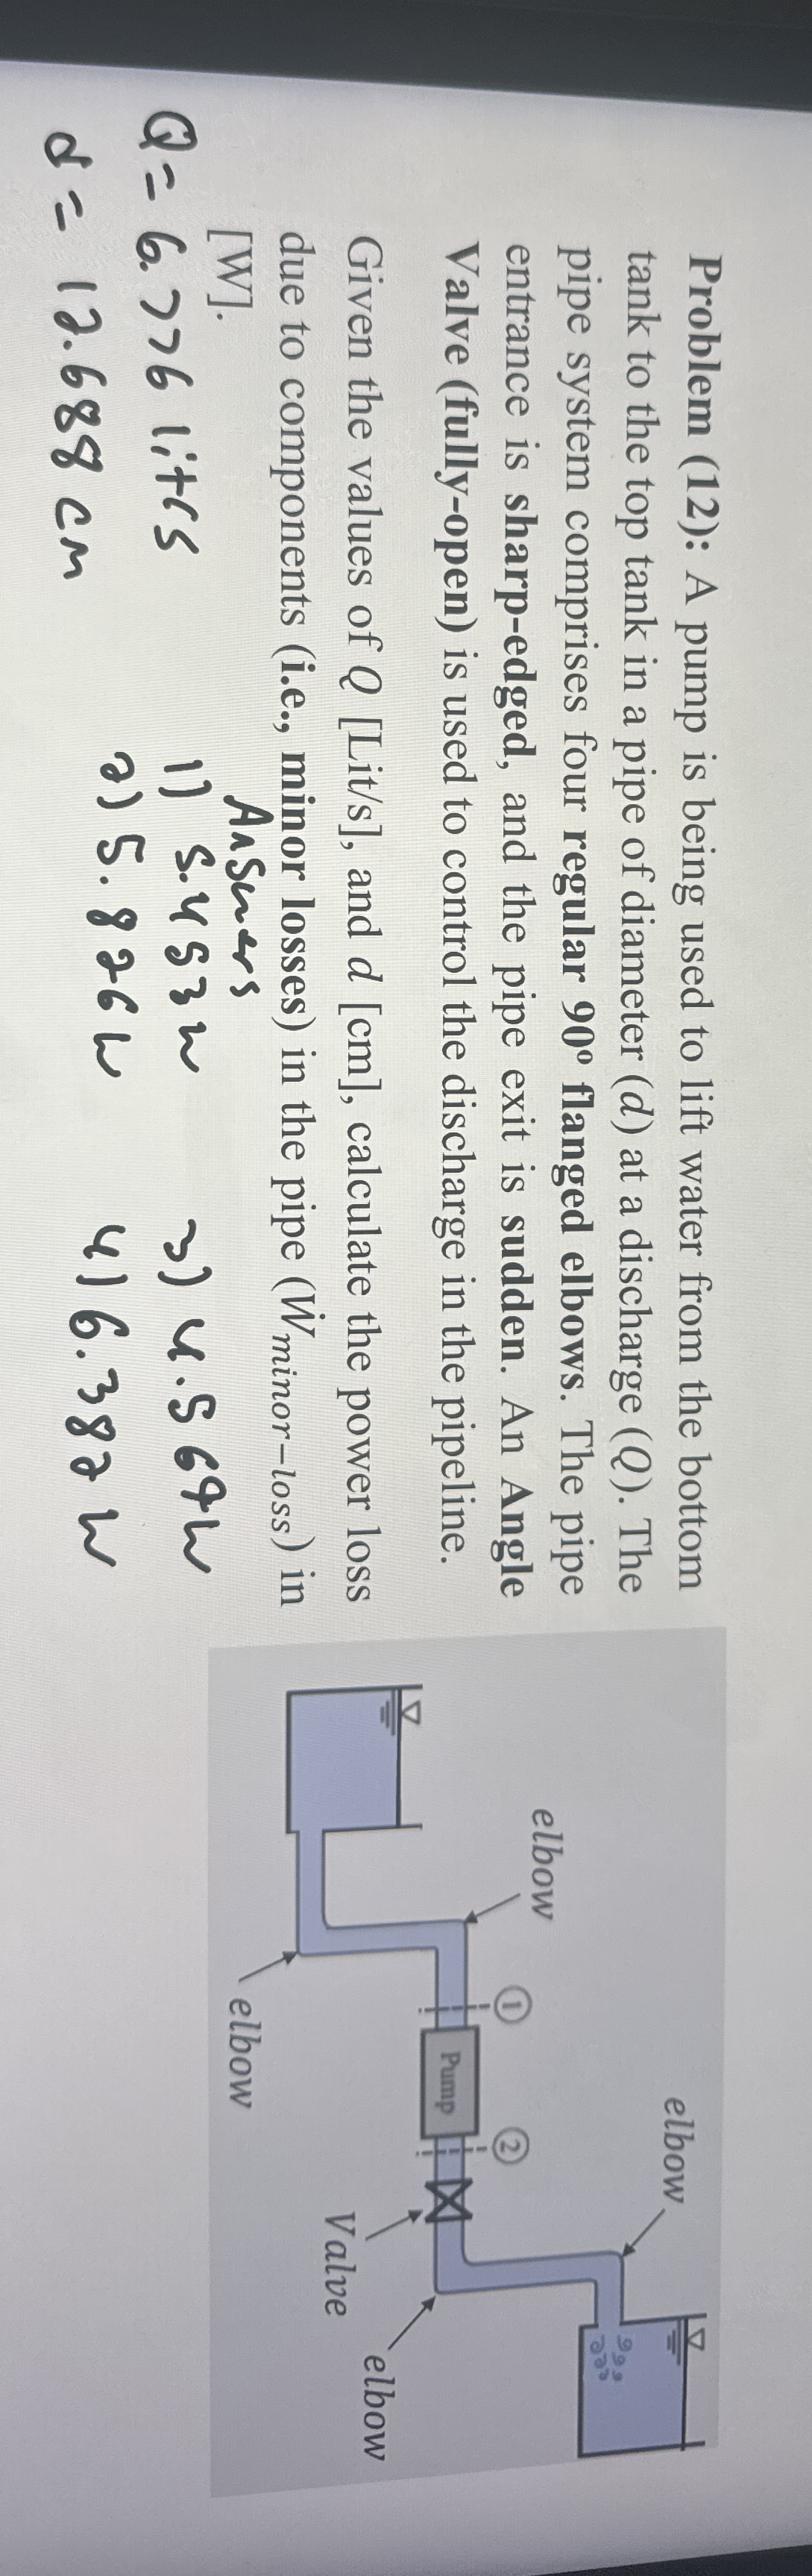 Problem (12): A pump is being used to lift water from the bottom
tank to the top tank in a pipe of diameter (d) at a discharge (Q). The
pipe system comprises four regular 90º flanged elbows. The pipe
entrance is sharp-edged, and the pipe exit is sudden. An Angle
Valve (fully-open) is used to control the discharge in the pipeline.
Given the values of Q [Lit/s], and d [cm], calculate the power loss
due to components (i.e., minor losses) in the pipe (Ẇminor−loss) in
[W].
elbow
elbow
1
Pump
2
Valve
elbow
elbow
Q = 6.776 lit/s
d = 12.688 cm
Answers
1) 5.453 w
2) 5.826 w
3) 4.569 w
4) 6.382 w